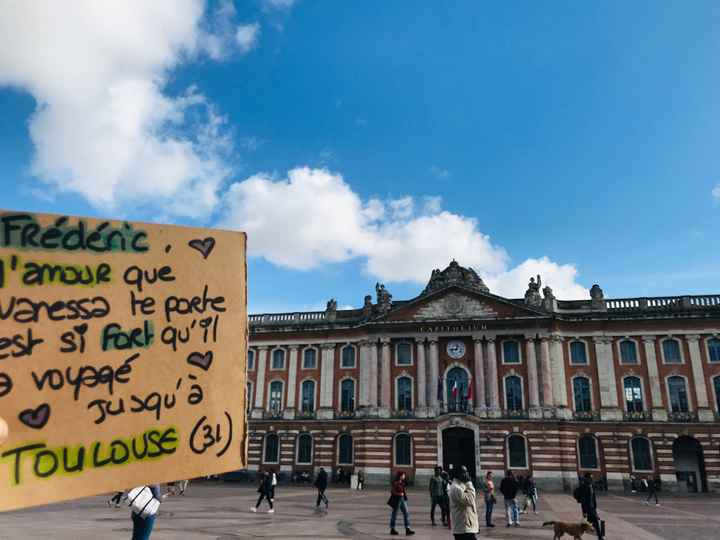 Frédéric,
l'amour que
Vanessa te porte
est si fort qu'il
a voyagé
jusqu'à
TOULOUSE (31)
CAPITOLIUM